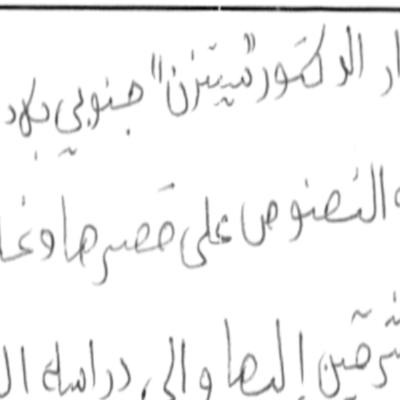 ار الدكتور "سيتزن" جنوبي بلاد
النصوص على قصرها وغا
شرقين إليها والى دراسة ال